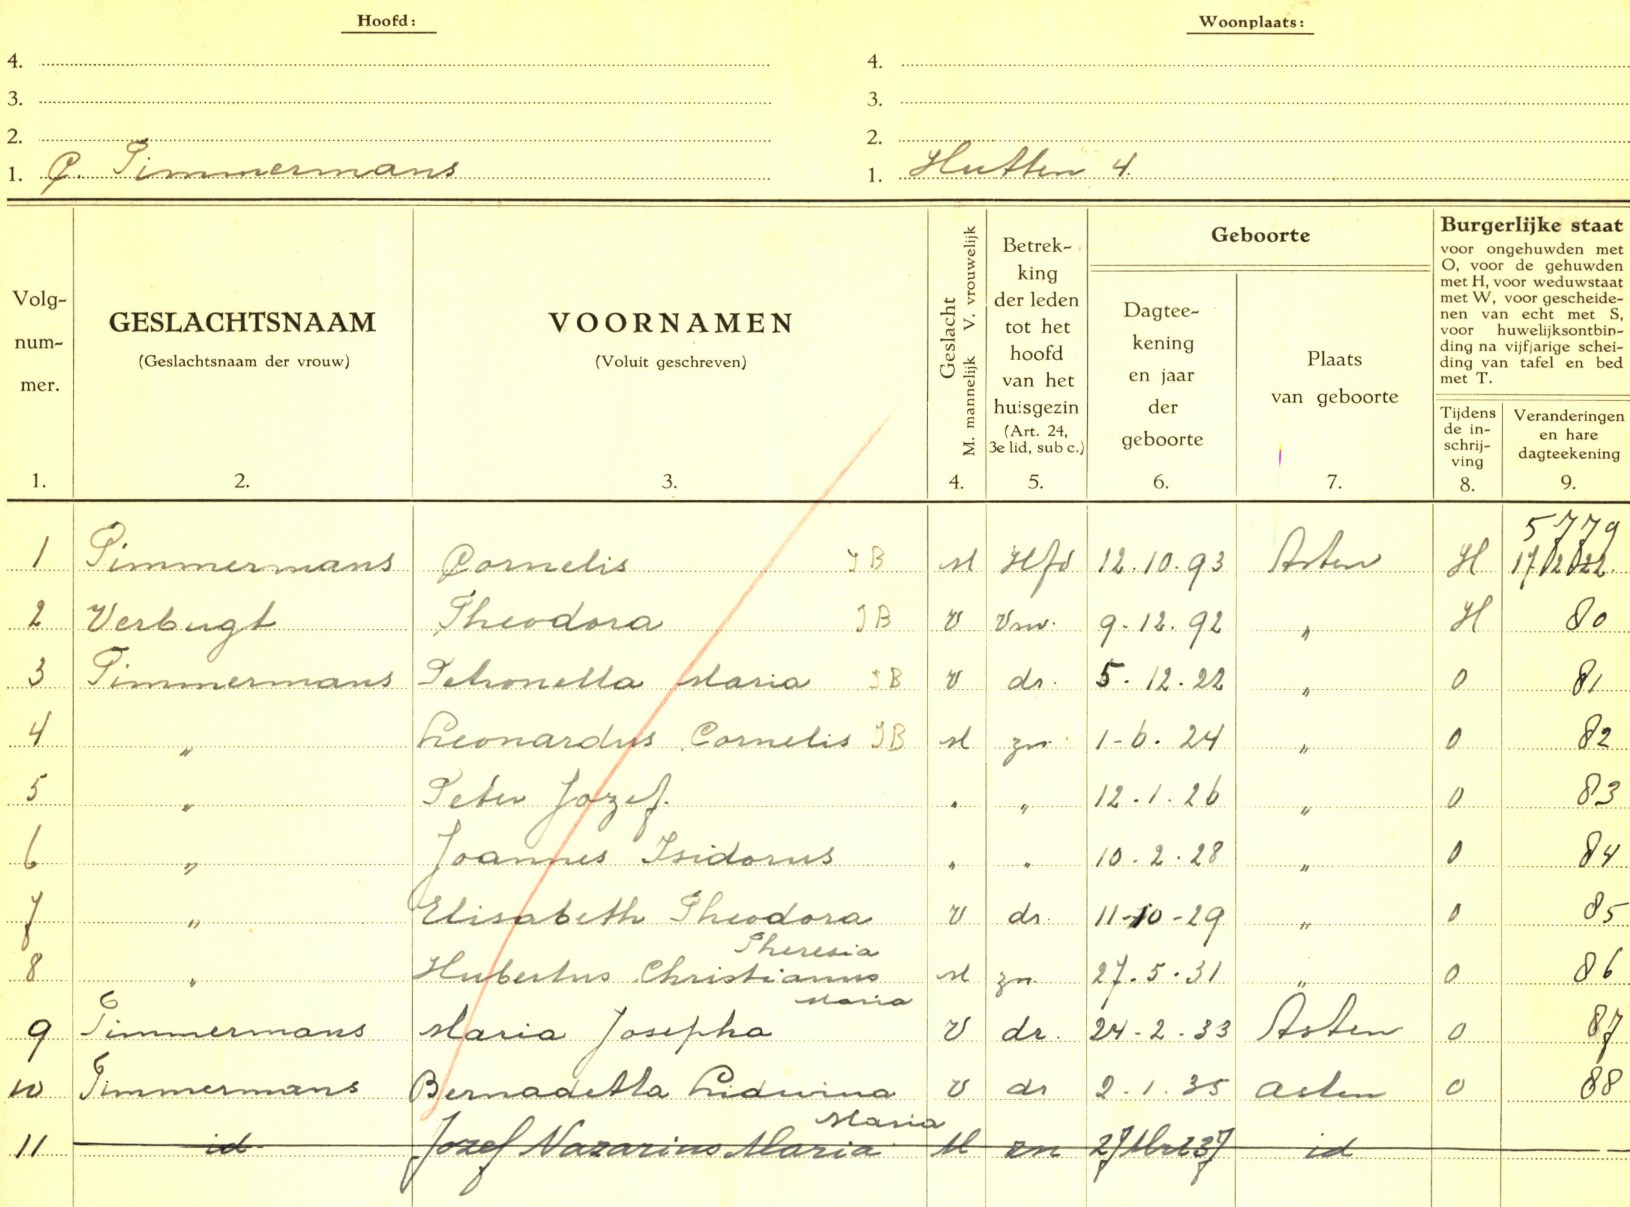 Hoofd:
Woonplaats:
4.
4.
3.
3.
2.
2.
1. C. Timmermans
1. Hutten 4
Volg-
num-
mer.
1.
GESLACHTSNAAM
(Geslachtsnaam der vrouw)
2.
VOORNAMEN
(Voluit geschreven)
3.
Geslacht
M. mannelijk V. vrouwelijk
4.
Betrek-
king
der leden
tot het
hoofd
van het
huisgezin
(Art. 24,
3e lid, sub c.)
5.
Geboorte
Dagtee-
kening
en jaar
der
geboorte
6.
Plaats
van geboorte
7.
Burgerlijke staat
voor ongehuwden met
O, voor de gehuwden
met H, voor weduwstaat
met W, voor gescheide-
nen van echt met S,
voor huwelijksontbin-
ding na vijfjarige schei-
ding van tafel en bed
met T.
Tijdens
de in-
schrij-
ving
8.
Veranderingen
en hare
dagteekening
9.
5779
1 Timmermans Cornelis IB M Hfd 12.10.93 Asten H 17/2 22
2 Verbugt Theodora IB V Vrw. 9-12.92 " H 80
3 Timmermans Petronella Maria IB V dr. 5.12.22 " O 81
4 " Leonardus Cornelis IB M zn. 1-6.24 " O 82
5 " Peter Jozef. " " 12.1.26 " O 83
6 " Joannes Isidorus " " 10.2.28 " O 84
7 " Elisabeth Theodora V dr. 11-10-29 " O 85
Theresia
8 " Hubertus Christianus M zn 27.5.31 " O 86
Maria
9 Timmermans Maria Josepha V dr. 24-2.33 Asten O 87
10 Timmermans Bernadetta Lidwina V dr 2.1.35 Asten O 88
Maria
11 id Jozef Nazarius Maria M zn 27 Mrt 37 id